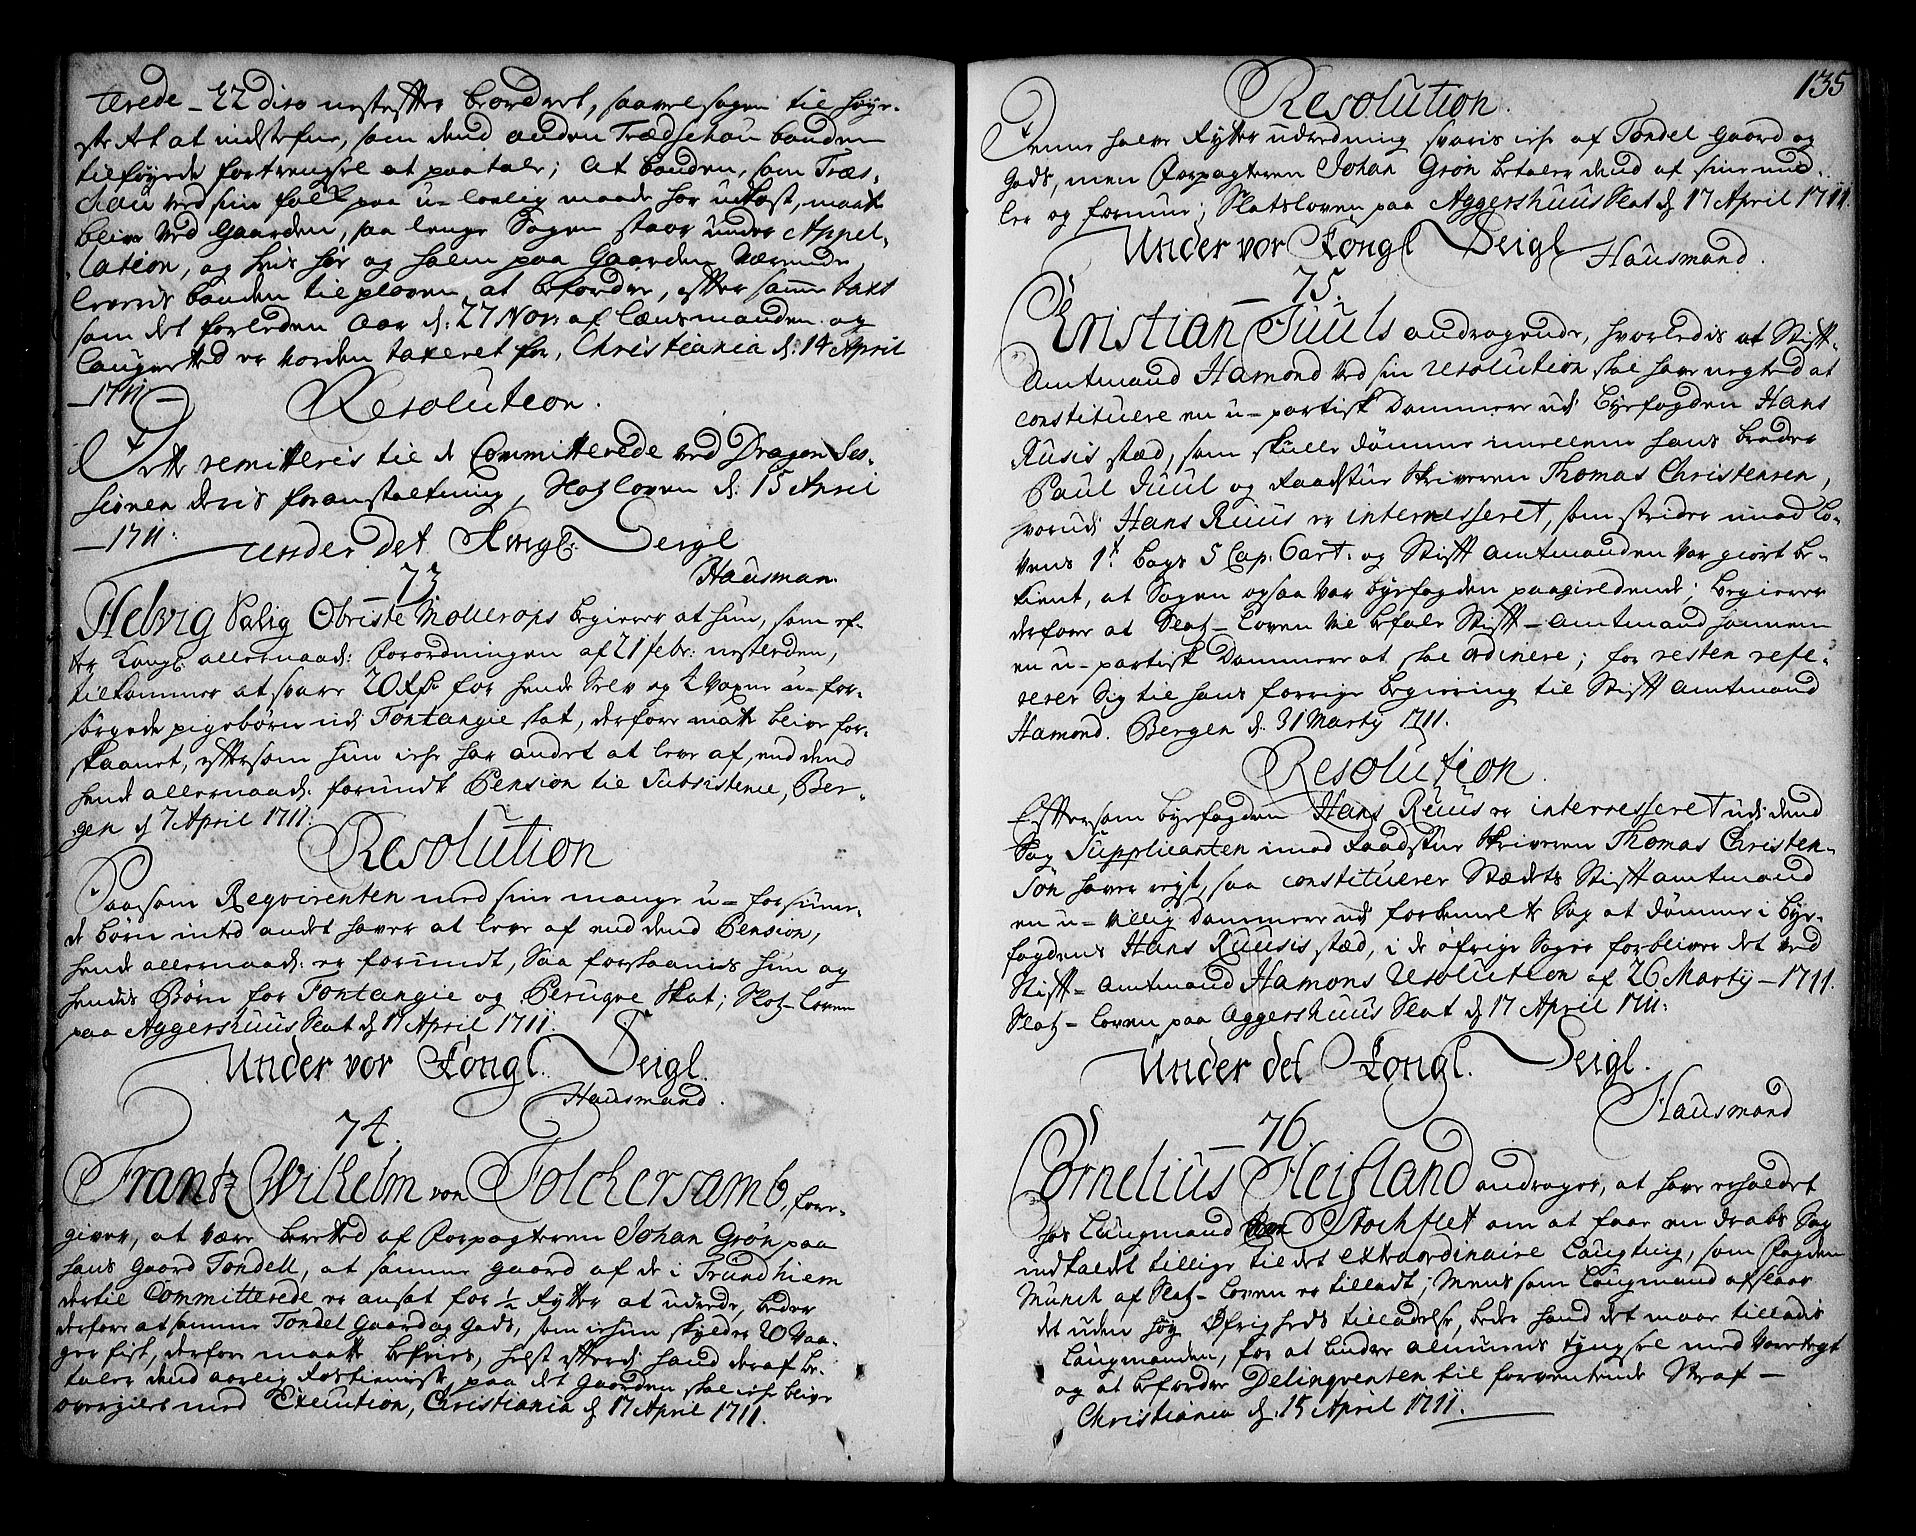 terede _ 22 diro nestefter beordret, saavel sagen til høye-
ste Ret at indstefne, som dend anden Trædschou bonden
tilføyede fortrengsel at paatale; At bonden, som Træs-
chau ved sin foll paa u-lovlig maade har udkast, maatte
blive ved Gaarden, saa lenge Sagen staar under Appel-
lation, og hvis høe og halm paa Gaarden værende
leveris bonden til ploven at befordre, efter samme taxt
som det forleden Aar d: 27 Nov: af Lensmanden og
Laugretted er vorden taxeret for, Christiania d: 14 April
_ 1711 _
Resolution.
Dette remitteris til de Committerede ved Dragon Ses-
sionen deris foranstaltning, Slotzloven d: 15 April
_ 1711:
under det Kongl: Seigl
Hausman.
73.
Helvig Salig Obriste Mollerops begierer at hun, som ef-
ter Kongl: allernaad: Forordningen af 21 febr: nestleden,
tilkommer at svare 20 Rdr for hende Selv og 2 Voxne u-for-
sørgede pigebørn udi Fontangie skat, derfore maatte blive for-
skaanet, eftersom hun icke har andet at leve af, end dend
hende allernaad: forundte Pension til Subsistence, Ber-
gen d 7 April 1711.
Resolution
Saasom Reqvirenten med sine mange u-forsørge-
de børn inted andet haver at leve af end dend Pension,
hende allernaad: er forundt, Saa forskaanis hun og
hendis Børn for Fontangie og Peruqve Skat; Slotz-Loven
paa Aggershuus Slot d 17 April 1711.
Under vor Kongl. Seigl.
Hausmand.
74.
Frantz Wilhelm von Folchersamb, fore-
giver, at være beretted af Forpagteren Johan Grøn paa
hans Gaard Tondell, at samme gaard af de i Trundhiem
dertil Committerede er ansat for ½ Rytter at udrede, beder
derfore at samme Tondel Gaard og Gods, som ickun skylder 20 Vaa-
ger fisk, derfore maatte befries, helst efterdi hand deraf be-
taler dend aarlig Rostieneste, paa det Gaarden skal icke blive
overiilet med Execution, Christiania d 17 April 1711.
135
Resolution.
Denne halve Rytter udredning svaris icke af Tondel Gaard og
Gods, men Forpagteren Johan Grøn betaler dend af sine mid-
ler og formue; Slotsloven paa Aggershuus Slot d 17 April 1711.
Under vor Kongl Seigl
Hausmand.
_ 75.
Christian Juuls andragende, hvorledis at Stift-
Amtmand Hamond ved sin resolution skal have negted at
constituere en u-partisk Dommere udi Byefogden Hans
Rusis stæd, som skulle dømme imellem hans broder
Paul Juul og Raadstue Skriveren Thomas Christensen,
hvorudi Hans Ruus er interresseret, som strider imod Lo-
vens 1t Bogs 5 Cap: 6 art: og Stift Amtmanden var giort be-
kient, at Sagen ogsaa var byefogden paagieldende; begierer
derfore at Slotz-Loven vil befale Stift-Amtmand Hamon
en u-partisk Dommere at skal ordinere; for resten refe-
rerer Sig til hans forrige begiering til Stift Amtmand
Hamond. Bergen d. 31 Marty 1711.
Resolution.
Eftersom byefogden Hans Ruus er interresseret udi dend
Sag Supplicanten imod Raadstue Skriveren Thomas Christen-
søn haver rejst, saa constituerer Stædets Stift amtmand
en u-villig Dommere udi forbemelte Sag at dømme i Bye-
fogdens Hans Ruusis stæd, i de øfrige Sager forbliver det ved
Stift-amtmand Hamons resolution af 26 Marty _ 1711.
Slotz-Loven paa Aggershuus Slot d 17 April 1711:
Under det Kongl. Seigl.
Hausmand
_ 76.
Cornelius Heisland andrager, at have erholdet
hos Laugmand Stockflet om at faae en drabs Sag
indkaldet tillige til det extraordinaire Laugting, som Fogden
Munch af Slotz-Loven er tilladt; Mens som Laugmand afslaar
det uden høy Øfrigheds tilladelse, beder hand det maae tilladis
Laugmanden, for at lindre almuens tyngsel med Varetegt
og at befordre Delinqventen til forventende Straf _
Christiania d: 15 April 1711.